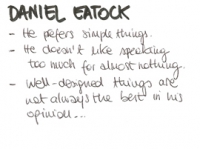 DANIEL EATOCK
- He prefers simple things.
- He doesn't like speaking
too much for almost nothing.
- Well-designed things are
not always the best in his
opinion...